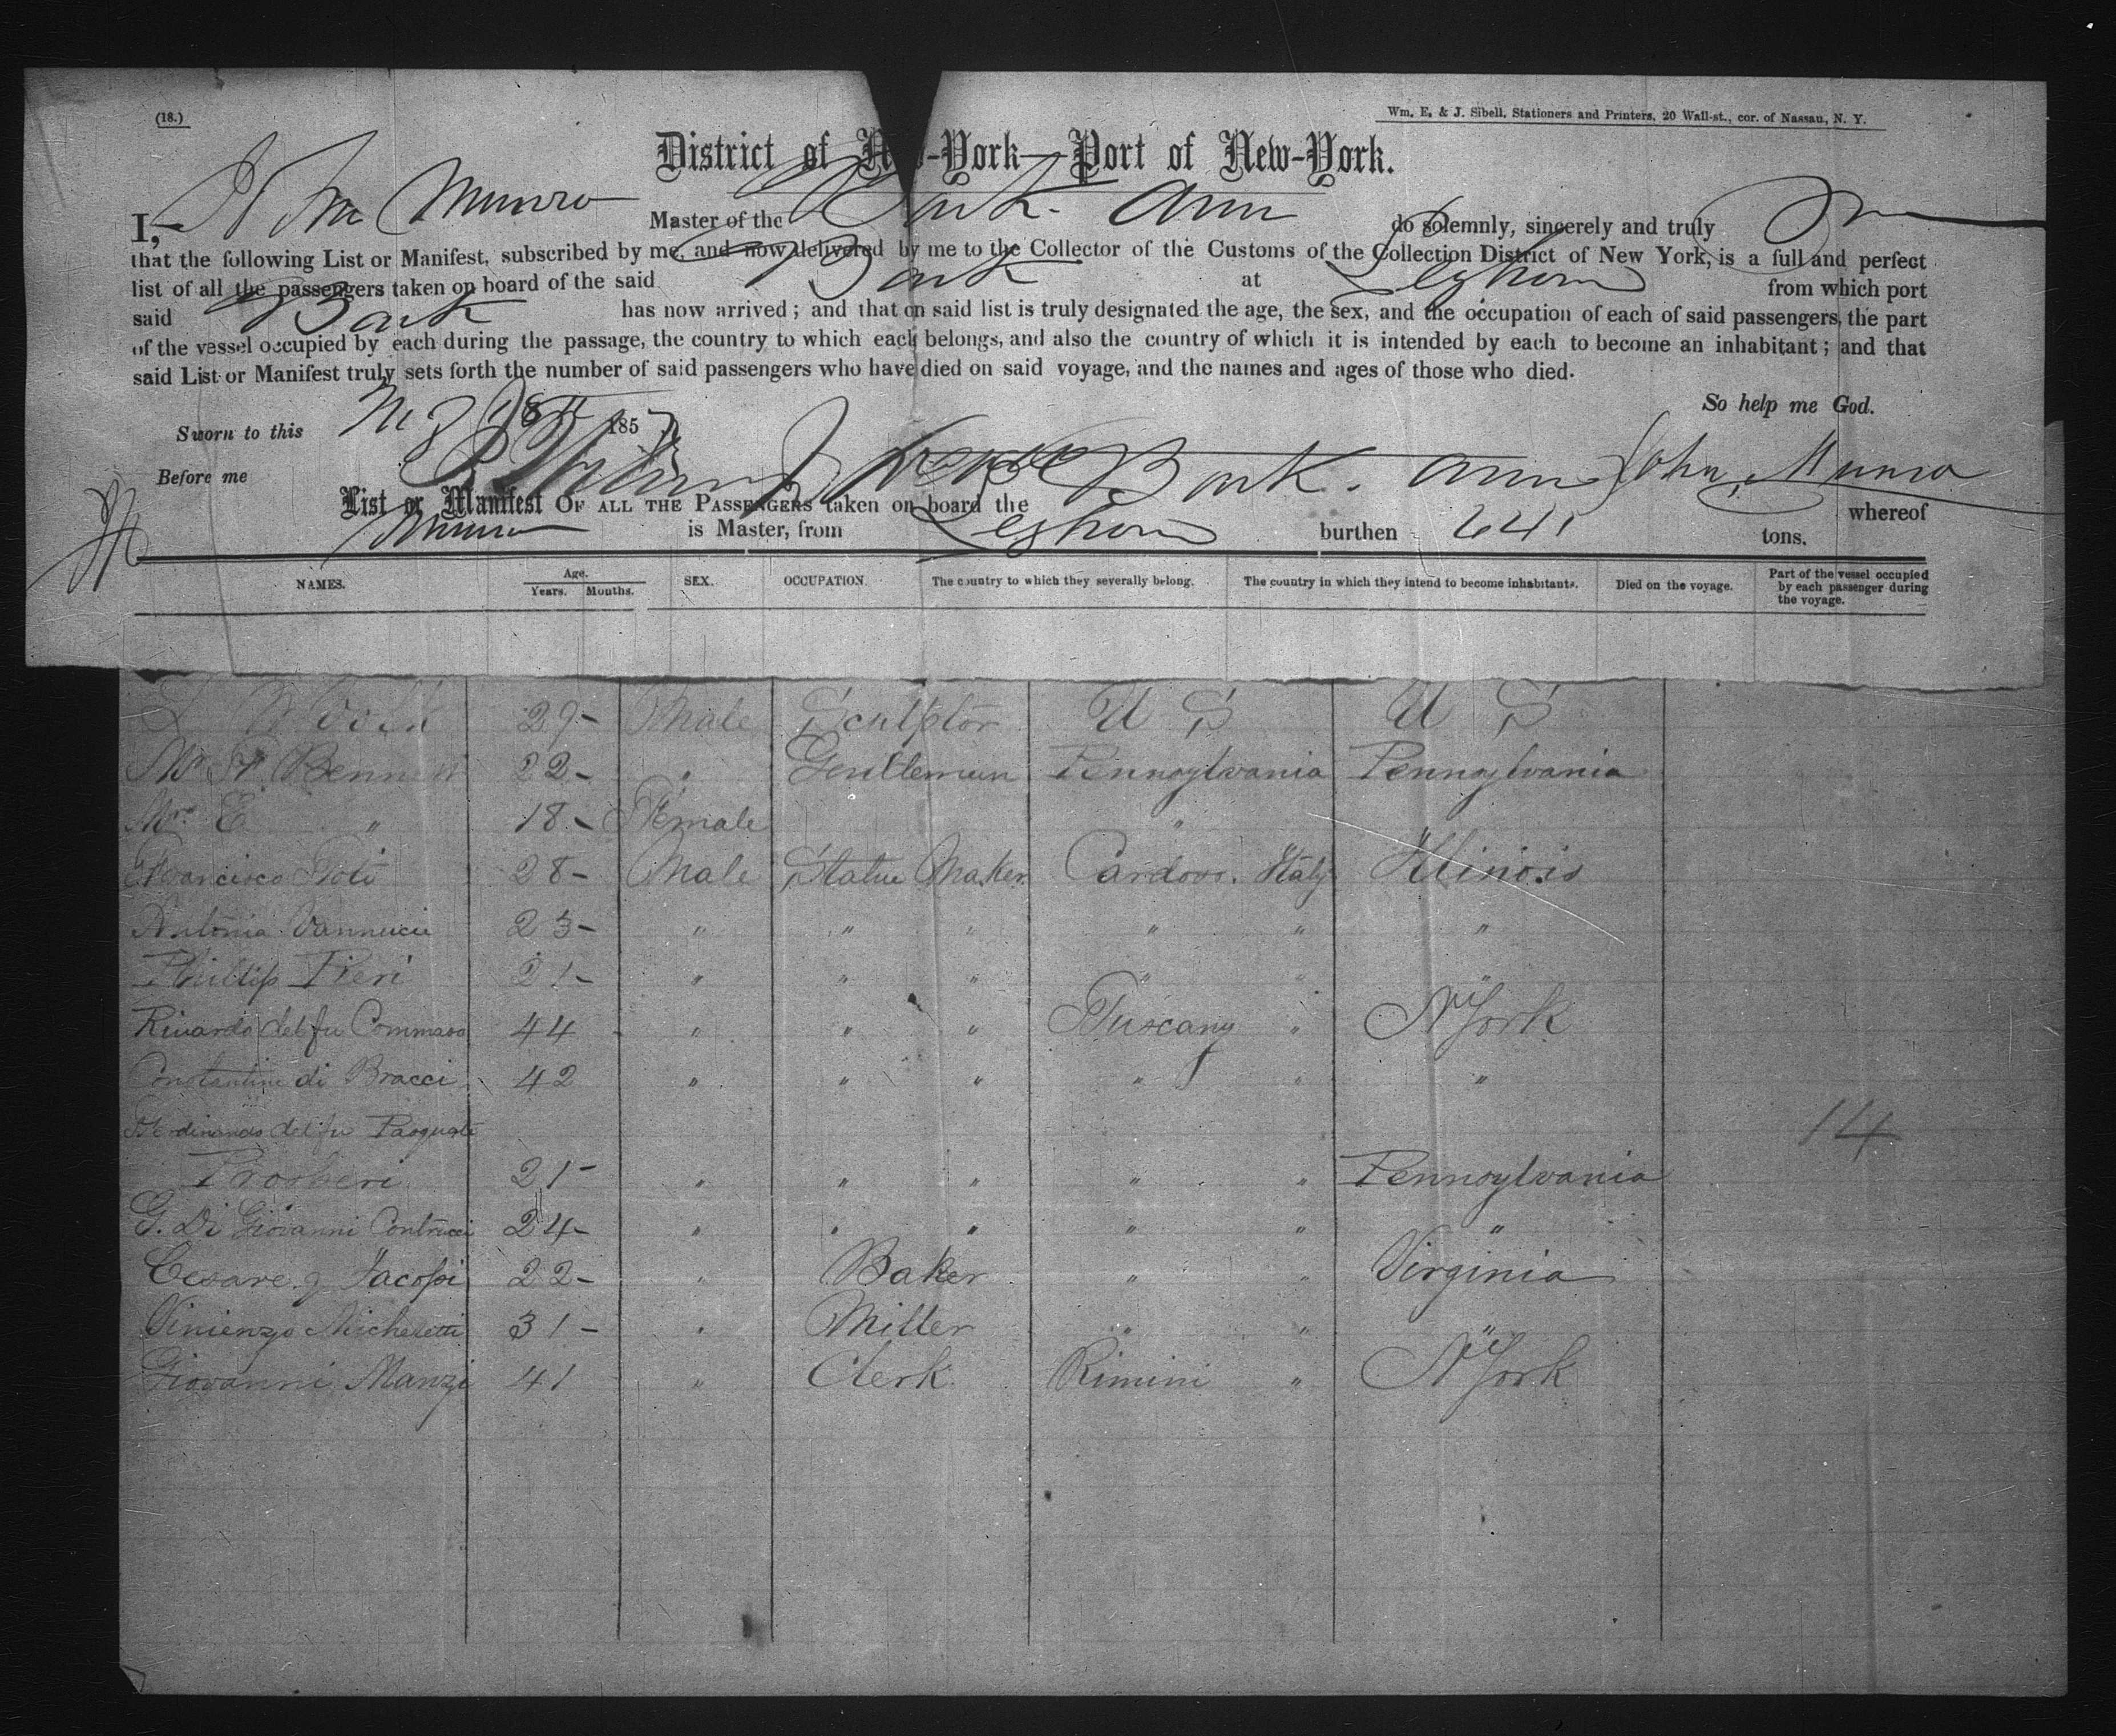 (18.)
Wm. E. & J. Sibell, Stationers and Printers, 20 Wall-st., cor. of Nassau, N. Y.
District of New-York—Port of New-York.
I, John Munro Master of the Bark Ann do solemnly, sincerely and truly
that the following List or Manifest, subscribed by me, and now delivered by me to the Collector of the Customs of the Collection District of New York, is a full and perfect
list of all the passengers taken on board of the said Bark at Leghorn from which port
said Bark has now arrived; and that on said list is truly designated the age, the sex, and the occupation of each of said passengers, the part
of the vessel occupied by each during the passage, the country to which each belongs, and also the country of which it is intended by each to become an inhabitant; and that
said List or Manifest truly sets forth the number of said passengers who have died on said voyage, and the names and ages of those who died.
So help me God.
Sworn to this 185
Before me John Munro
List or Manifest OF ALL THE PASSENGERS taken on board the Bark Ann whereof
Munro is Master, from Leghorn burthen 641 tons.
NAMES. Age. Years. Months. SEX. OCCUPATION. The country to which they severally belong. The country in which they intend to become inhabitants. Died on the voyage. Part of the vessel occupied by each passenger during the voyage.
29- Male Sculptor U S U S
Mr Bennett 22- " Gentleman Pennsylvania Pennsylvania
Mrs E " 18- Female " "
Francisco 28- Male Statue Maker Cardoso. Italy Illinois
Antonia Vannucci 23- " " " " " "
Phillip Pieri 21- " " " " " "
Ricardo del fu Commaso 44 - " " " Tuscany " N York
Constantine di Bracci 42 " " " " " "
Ferdinando del fu Pasquale
21- " " " " " Pennsylvania
G. Di Giovanni Contrucci 24- " " " " " "
Cesare g Jacopi 22- " Baker " " Virginia
Vinienzo Micheletti 31- " Miller " " "
Giovanni Manzi 41 " Clerk Rimini " N York
14